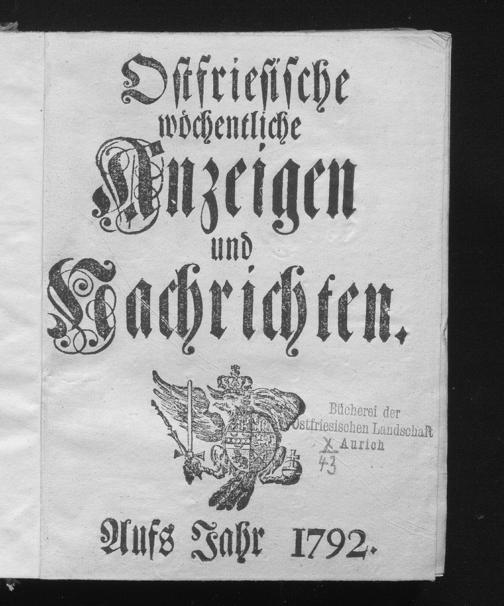 Ostfriesische
wöchentliche
Anzeigen
und
Nachrichten.
Bücherei der
Ostfriesischen Landschaft
X Aurich
43
Aufs Jahr 1792.